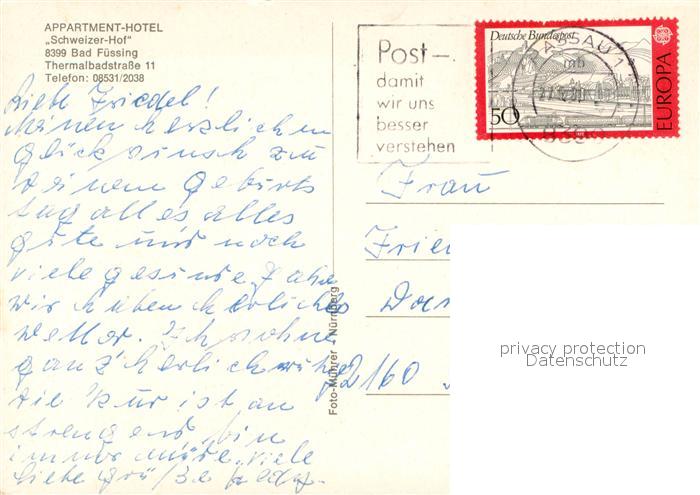 APPARTMENT-HOTEL
„Schweizer-Hof"
8399 Bad Füssing
Thermalbadstraße 11
Telefon: 08531/2038
Liebe Friedel!
Meinen herzlichen
Glückwunsch zu
deinem Geburts
tag alles alles
gute und noch
viele gesunde Jahre
wir haben herrliches
wetter. Ich wohne
ganz herrlich
die Kur ist an
strengend, bin
immer müde, viele
Liebe Grüße
Foto-Mührer / Nürnberg
Post-
damit
wir uns
besser
verstehen
PASSAU 1
mb
Deutsche Bundespost
50
EUROPA
Frau
2160
privacy protection
Datenschutz